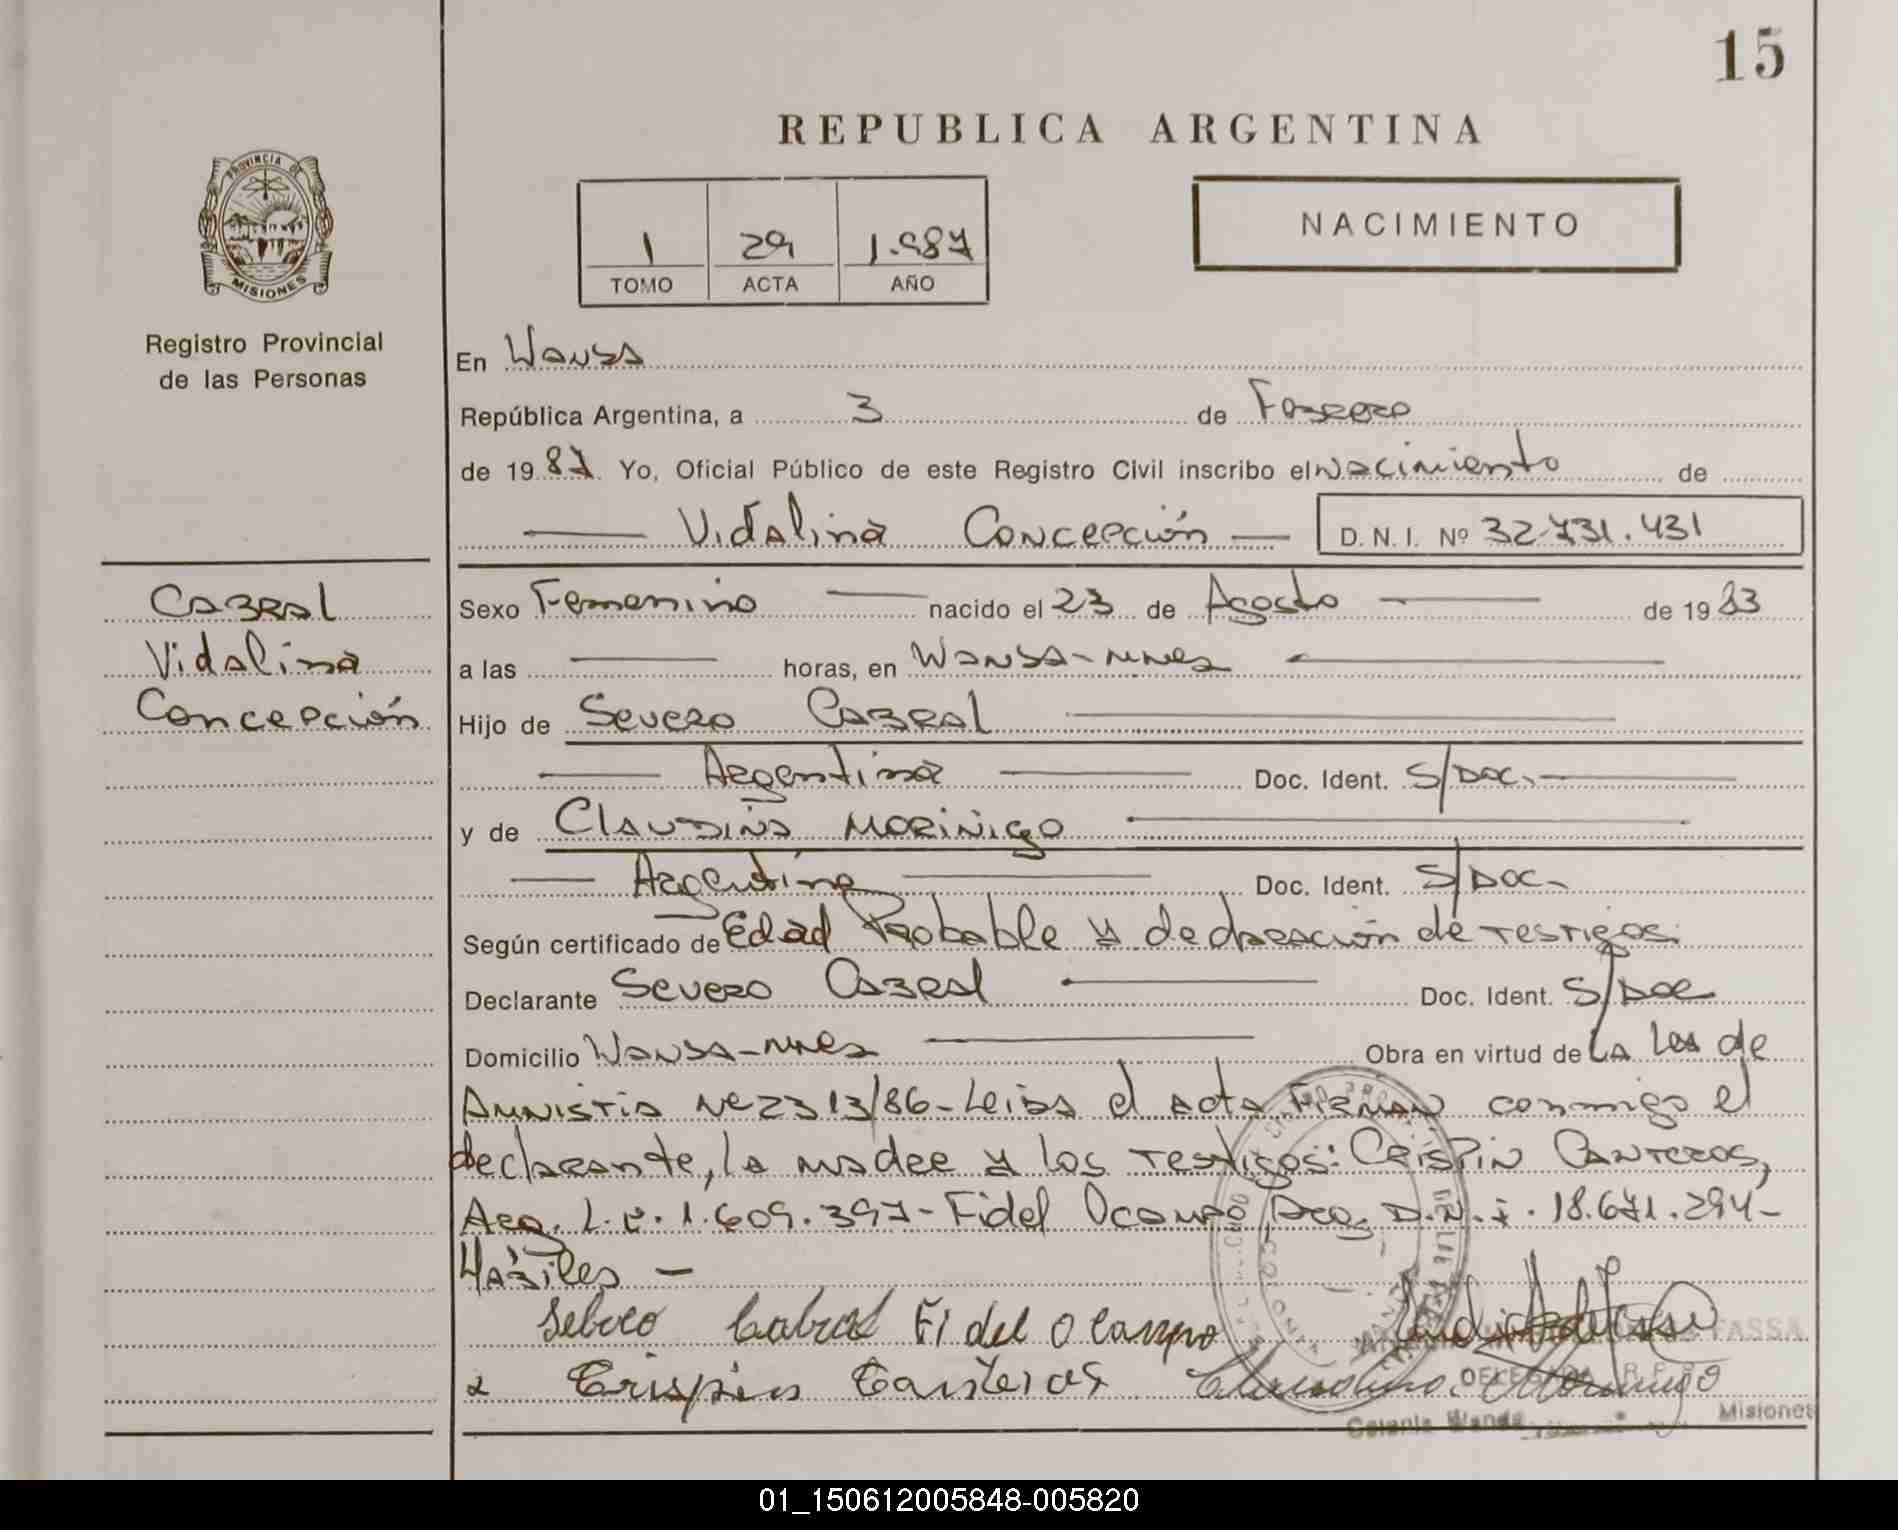 15
REPUBLICA ARGENTINA
PROVINCIA DE
MISIONES
Registro Provincial
de las Personas
1 29 1.987
TOMO ACTA AÑO
NACIMIENTO
En Wanda
República Argentina, a 3 de Febrero
de 1987 Yo, Oficial Público de este Registro Civil inscribo el Nacimiento de
Vidalina Concepción D. N. I. Nº 32.731.431
Cabral
Vidalina
Concepción
Sexo Femenino nacido el 23 de Agosto de 1983
a las horas, en Wanda-Mnes
Hijo de Severo Cabral
Argentina Doc. Ident. S/Doc.
y de Claudina Moriñigo
Argentina Doc. Ident. S/Doc.
Según certificado de Edad Probable y declaración de testigos.
Declarante Severo Cabral Doc. Ident. S/Doc
Domicilio Wanda-Mnes Obra en virtud de La Ley de
Amnistia Nº 2313/86-Leida el acta Firman conmigo el
declarante, la madre y los testigos: Crispin Canteros,
Arg. L.E. 1.609.397-Fidel Ocampo, Arg. D.N.I. 18.671.294-
Hábiles -
Sebero Cabral Fidel Ocampo
Crispin Canteros
DELEGADA R.P.P.
Colonia Wanda Misiones
01_150612005848-005820